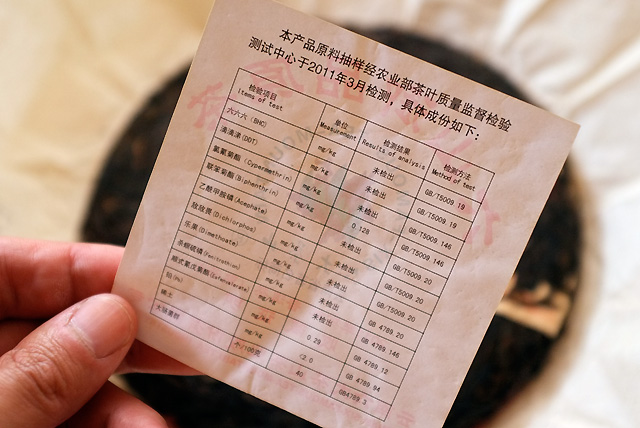 本产品原料抽样经农业部茶叶质量监督检验
测试中心于2011年3月检测，具体成份如下：
检验项目 单位 检测结果 检测方法
Items of test Measurement Results of analysis Method of test
六六六 (BHC) mg/kg 未检出 GB/T5009 19
滴滴涕(DDT) mg/kg 未检出 GB/T5009 19
氯氰菊酯(Cypermethrin) mg/kg 0.128 GB/T5009 146
联苯菊酯(Biphenthrin) mg/kg 未检出 GB/T5009 146
乙酰甲胺磷(Acephate) mg/kg 未检出 GB/T5009 20
敌敌畏(Dichlorphos) mg/kg 未检出 GB/T5009 20
乐果(Dimethoate) mg/kg 未检出 GB 4789 20
杀螟硫磷(Fenitrothion) mg/kg 未检出 GB 4789 20
顺式氰戊菊酯(Esfenvalerate) mg/kg 未检出 GB 4789 146
铅(Pb) mg/kg 0.29 GB 4789 12
稀土 mg/kg <2.0 GB 4789 94
大肠菌群 个/100克 40 GB4789 3